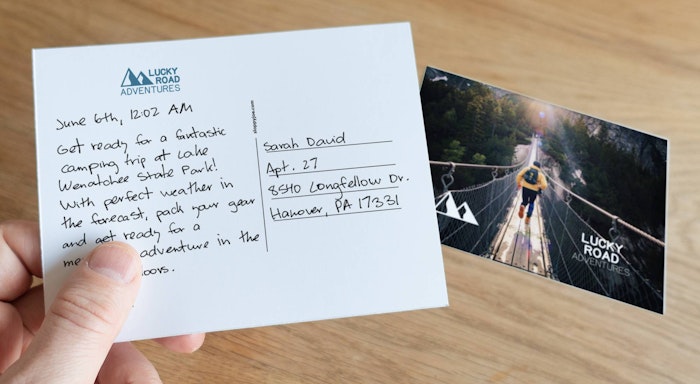 LUCKY
ROAD
ADVENTURES
June 6th, 12:02 AM
Get ready for a fantastic
camping trip at Lake
Wenatchee State Park!
With perfect weather in
the forecast, pack your gear
and get ready for a
adventure in the
Sarah David
Apt. 27
8540 Longfellow Dr.
Hanover, PA 17331
LUCKY
ROAD
ADVENTURES